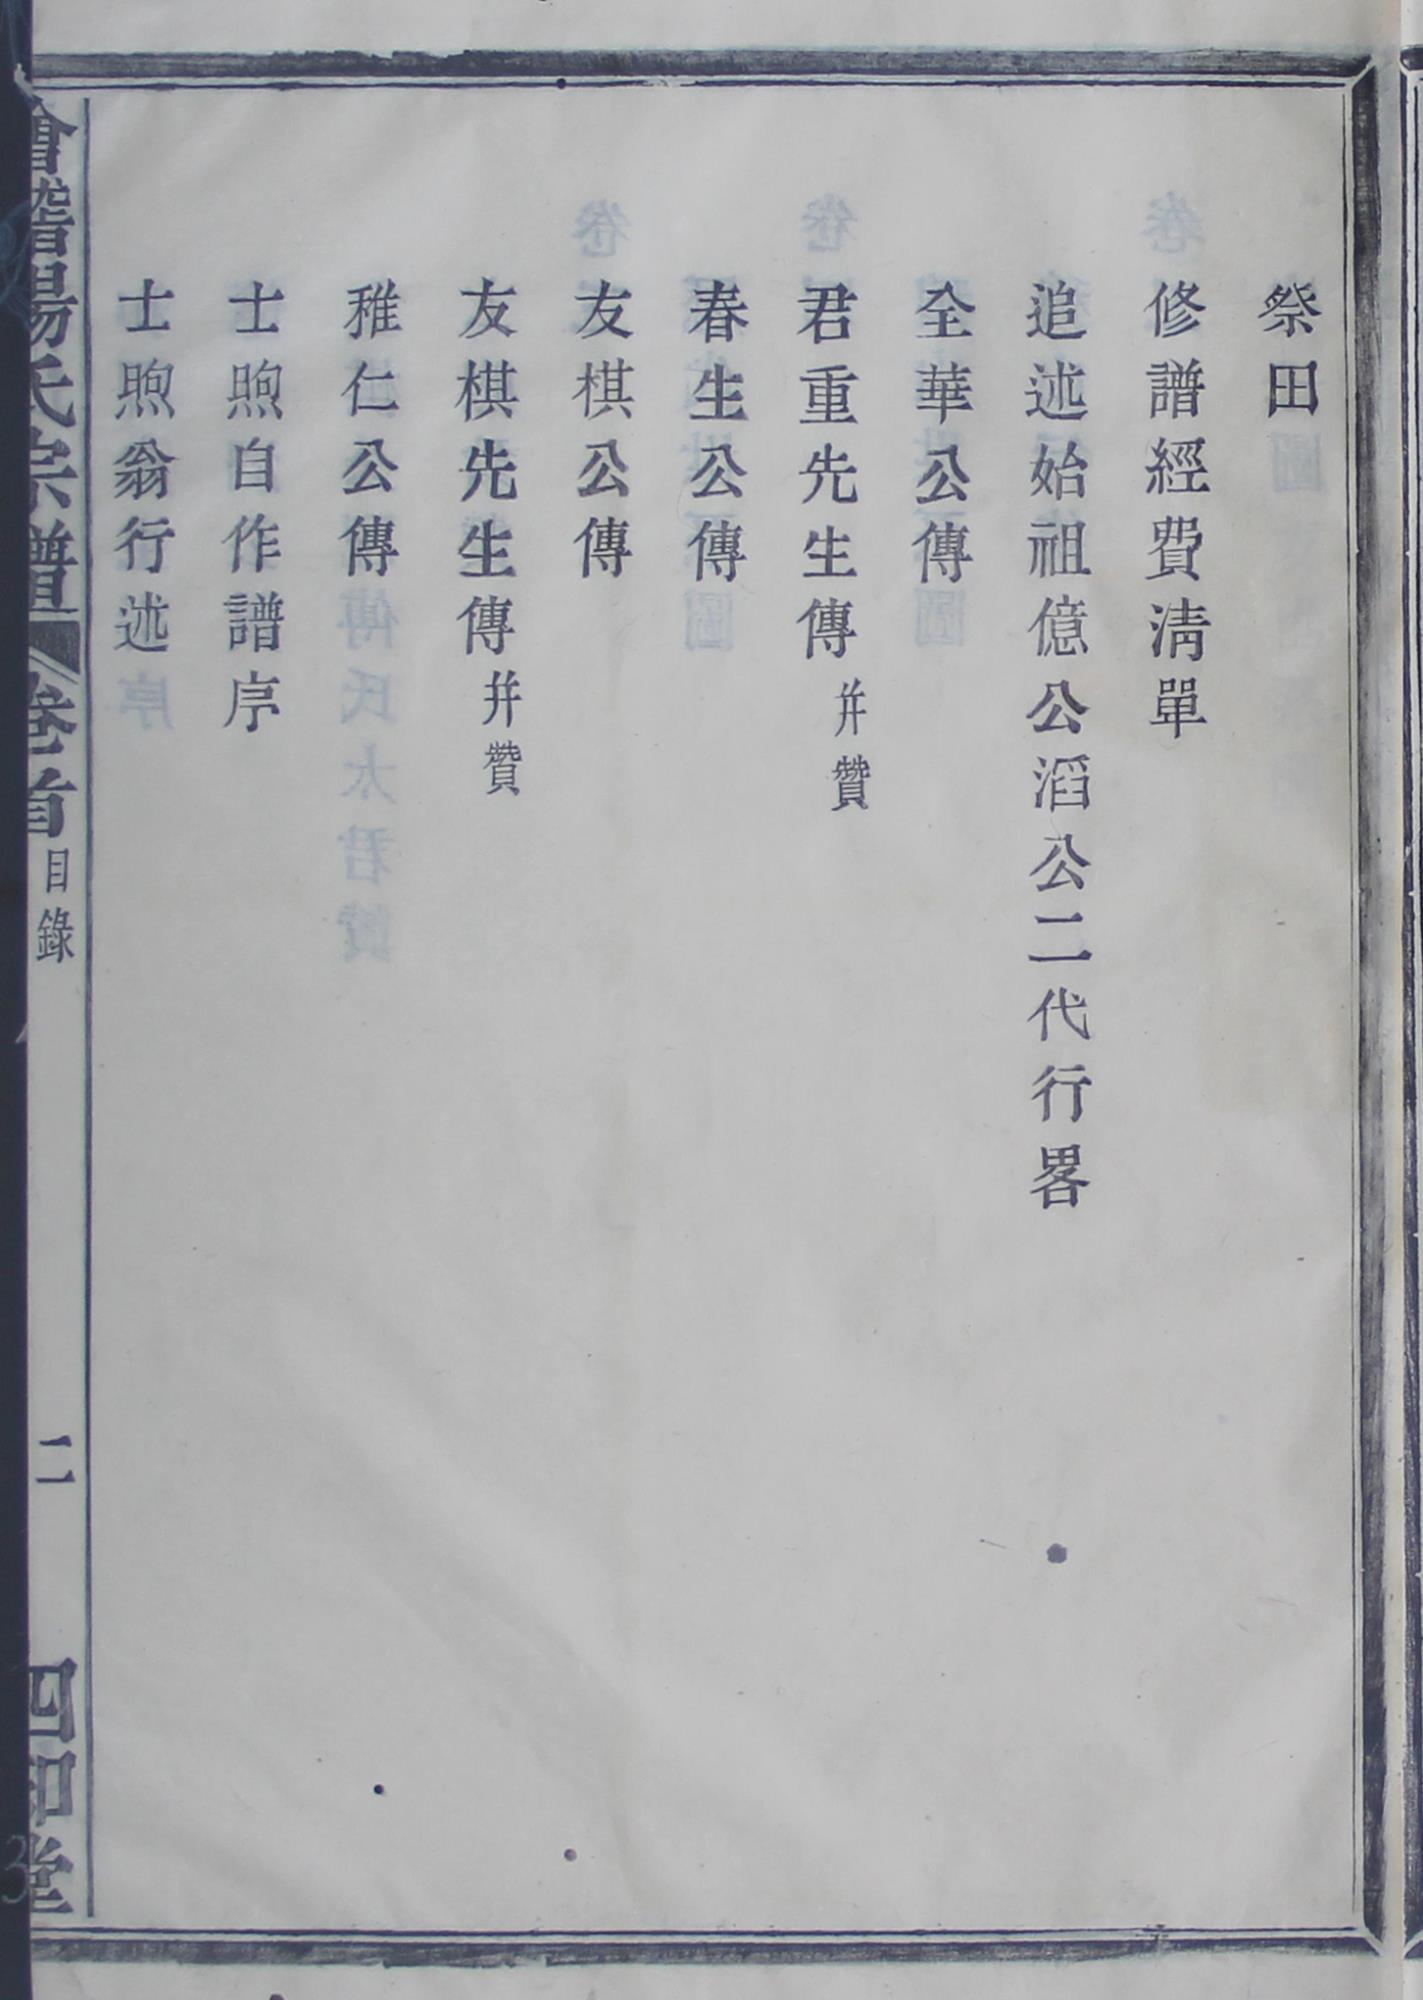 祭田
修譜經費清單
追述始祖億公滔公二代行畧
全華公傳
君重先生傳并贊
春生公傳
友棋公傳
友棋先生傳并贊
稚仁公傳
士煦自作譜序
士煦翁行述
會稽楊氏宗譜 卷首 目錄 二 四知堂